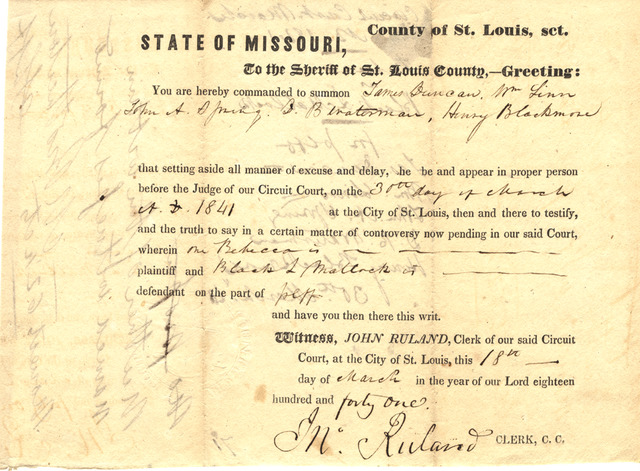 County of St. Louis, sct.
STATE OF MISSOURI,
To the Sheriff of St. Louis County,—Greeting:
You are hereby commanded to summon James Duncan, Wm Linn
John A. Spring, D. Henry Blackmore
that setting aside all manner of excuse and delay, he be and appear in proper person
before the Judge of our Circuit Court, on the 30th day of March
A. D. 1841 at the City of St. Louis, then and there to testify,
and the truth to say in a certain matter of controversy now pending in our said Court,
wherein one Rebecca is
plaintiff and Black &
defendant on the part of plff
and have you then there this writ.
Witness, JOHN RULAND, Clerk of our said Circuit
Court, at the City of St. Louis, this 18th
day of March in the year of our Lord eighteen
hundred and forty one.
Jno. Ruland CLERK, C. C.